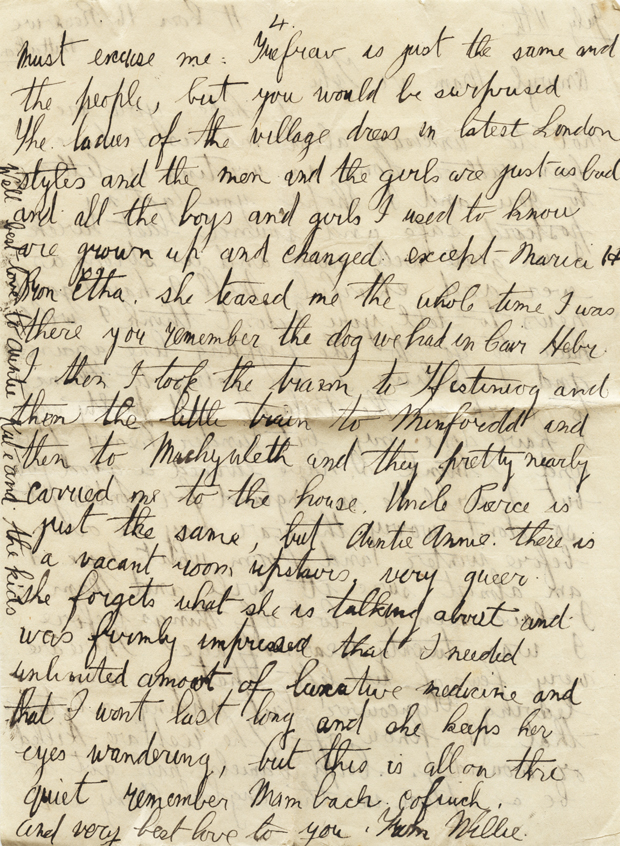 4.
Must excuse me. Trefraw is just the same and
the people, but you would be surprised
The ladies of the village dress in latest London
styles and the men and the girls are just as bad
and all the boys and girls I used to know
are grown up and changed. except Maria H
Bron Etha. she teased me the whole time I was
there you remember the dog we had in Caer Hebr
I then I took the train to Ffestiniog and
then the little train to Minfordd and
then to Machynleth and they pretty nearly
carried me to the house. Uncle Pierce is
just the same, but Auntie Annie. there is
a vacant room upstairs, very queer.
she forgets what she is talking about and
was firmly impressed that I needed
unlimited amoot of laxative medicine and
that I wont last long and she keeps her
eyes wandering, but this is all on the
quiet remember Mam bach. cofiwch.
and very best love to you. From Willie.
Well best love to Auntie Kate and the kids